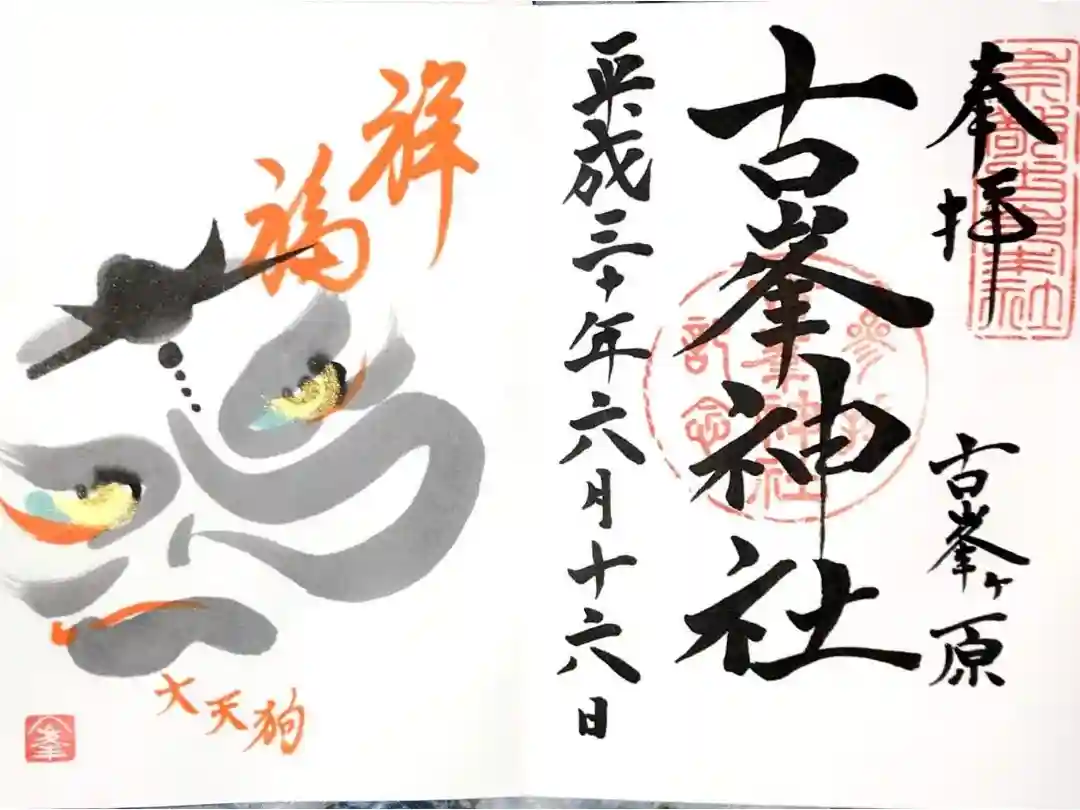 奉拝
古峯ヶ原
古峯神社
参拝
記念
平成三十年六月十六日
祥福
大天狗